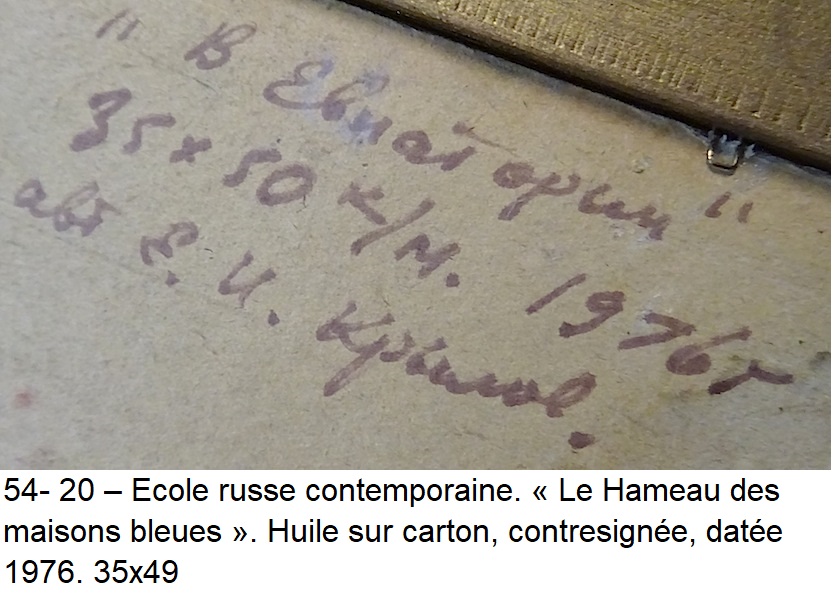 " В Евпатории "
35 x 50 к/м. 1976г
авт Е. И. Крылов.
54- 20 – Ecole russe contemporaine. « Le Hameau des
maisons bleues ». Huile sur carton, contresignée, datée
1976. 35x49